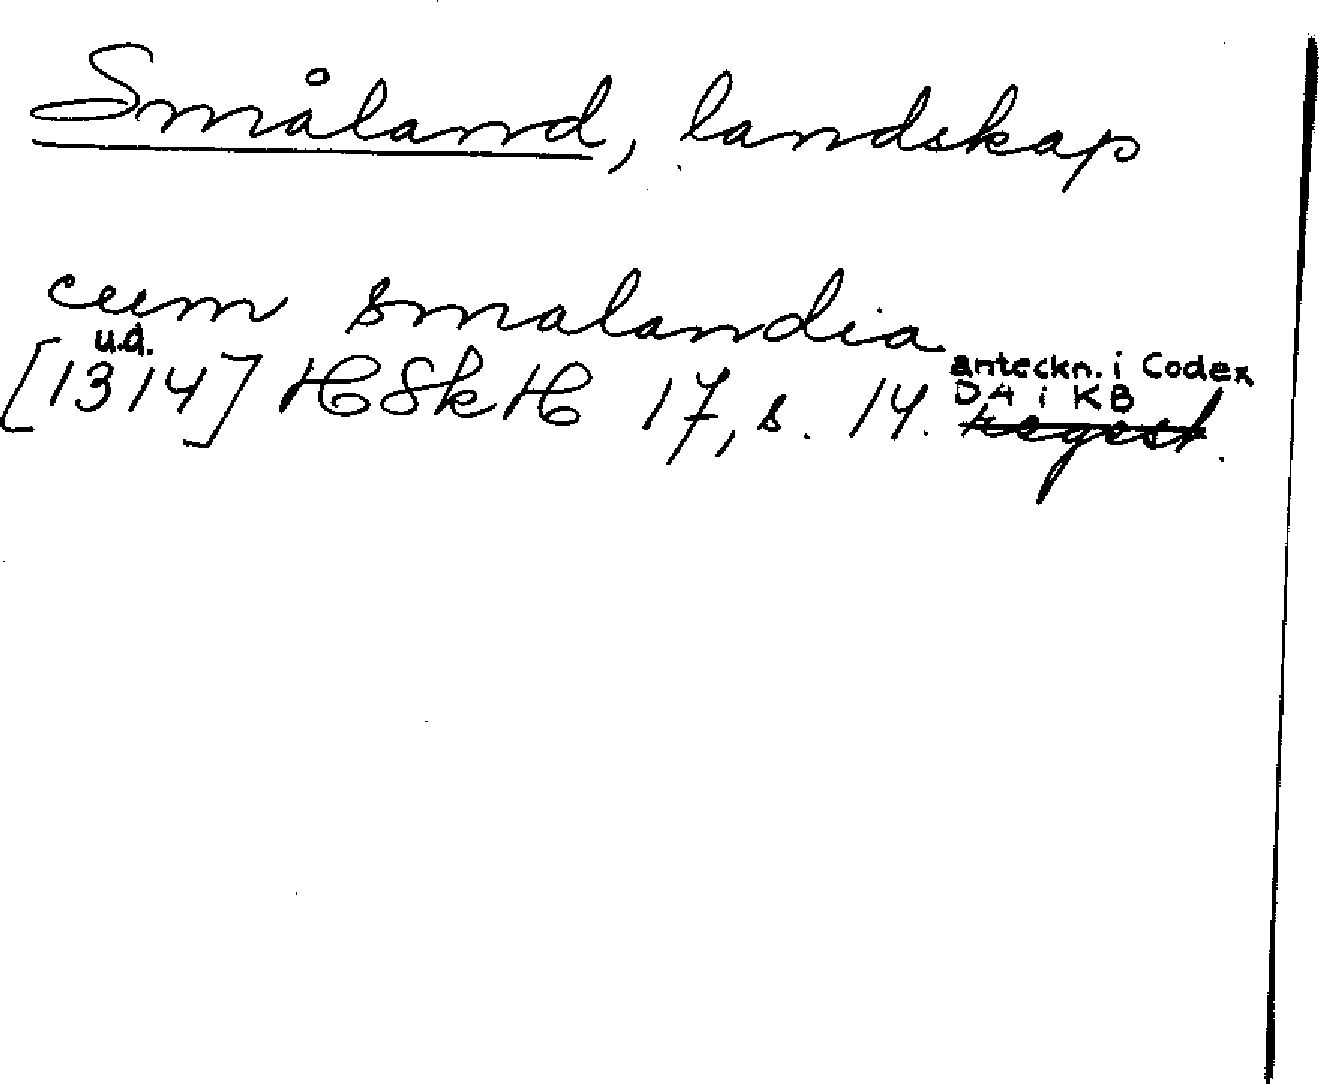 Småland, landskap
cum smalandia
u.å.
[1314] HSkH 17, s. 14. anteckn. i Codex
DA i KB
Regest.